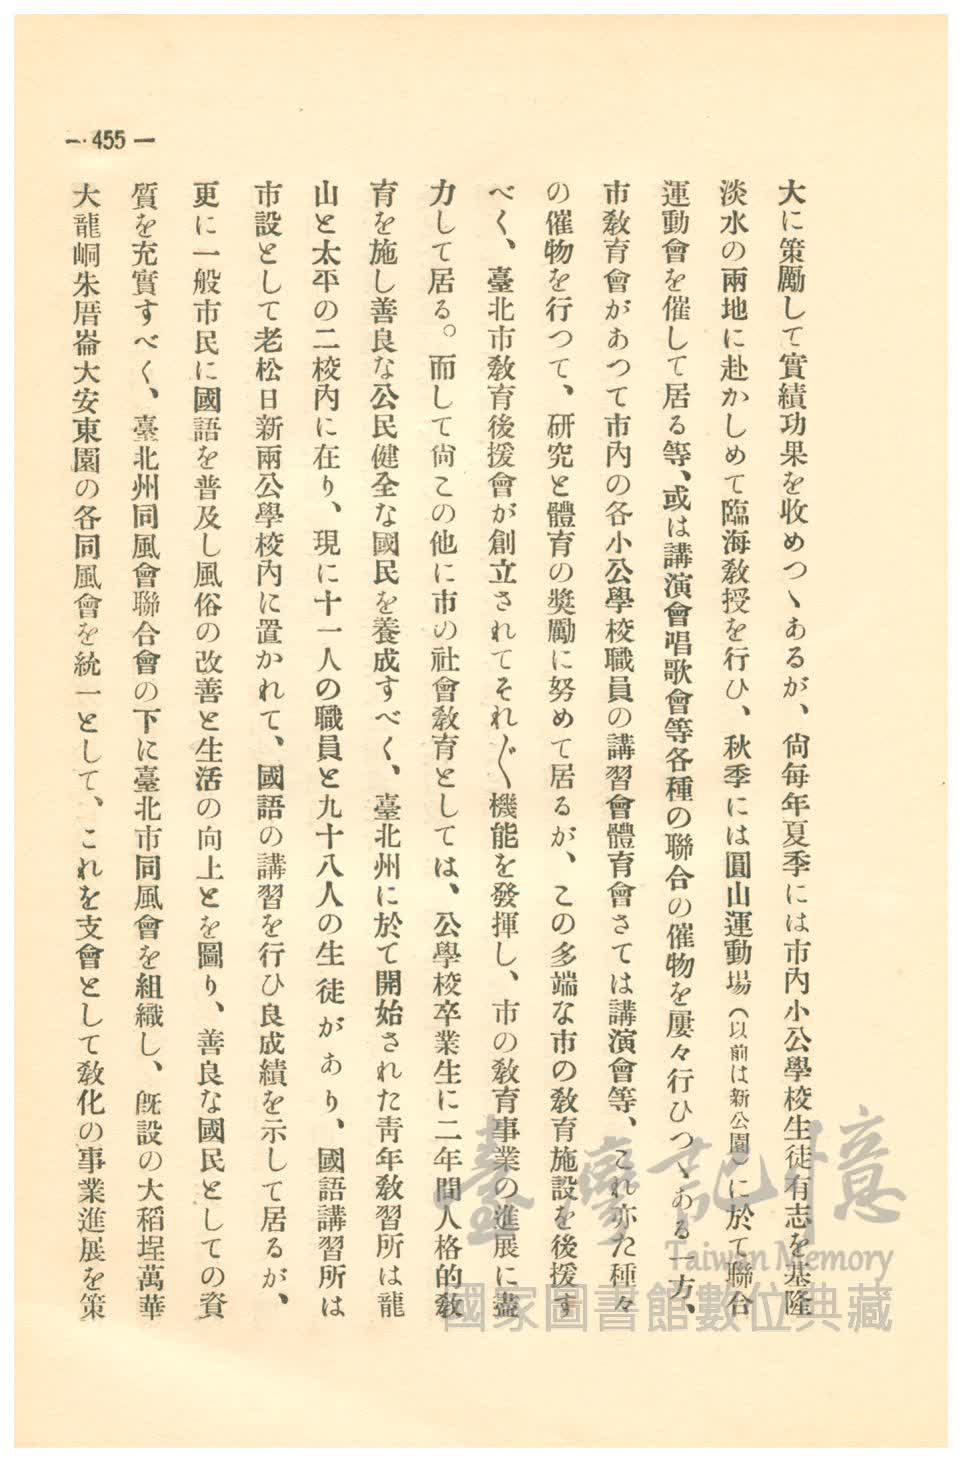 — 455 —
大に策勵して實績功果を收めつゝあるが、尙每年夏季には市內小公學校生徒有志を基隆
淡水の兩地に赴かしめて臨海敎授を行ひ、秋季には圓山運動場（以前は新公園）に於て聯合
運動會を催して居る等、或は講演會唱歌會等各種の聯合の催物を屢々行ひつゝある一方、
市敎育會があつて市內の各小公學校職員の講習會體育會さては講演會等、これ亦た種々
の催物を行つて、硏究と體育の奬勵に努めて居るが、この多端な市の敎育施設を後援す
べく、臺北市敎育後援會が創立されてそれ〴〵機能を發揮し、市の敎育事業の進展に盡
力して居る。而して尙この他に市の社會敎育としては、公學校卒業生に二年間人格的敎
育を施し善良な公民健全な國民を養成すべく、臺北州に於て開始された靑年敎習所は龍
山と太平の二校內に在り、現に十一人の職員と九十八人の生徒があり、國語講習所は
市設として老松日新兩公學校內に置かれて、國語の講習を行ひ良成績を示して居るが、
更に一般市民に國語を普及し風俗の改善と生活の向上とを圖り、善良な國民としての資
質を充實すべく、臺北州同風會聯合會の下に臺北市同風會を組織し、旣設の大稻埕萬華
大龍峒朱厝崙大安東園の各同風會を統一として、これを支會として敎化の事業進展を策
臺灣記憶
Taiwan Memory
國家圖書館數位典藏